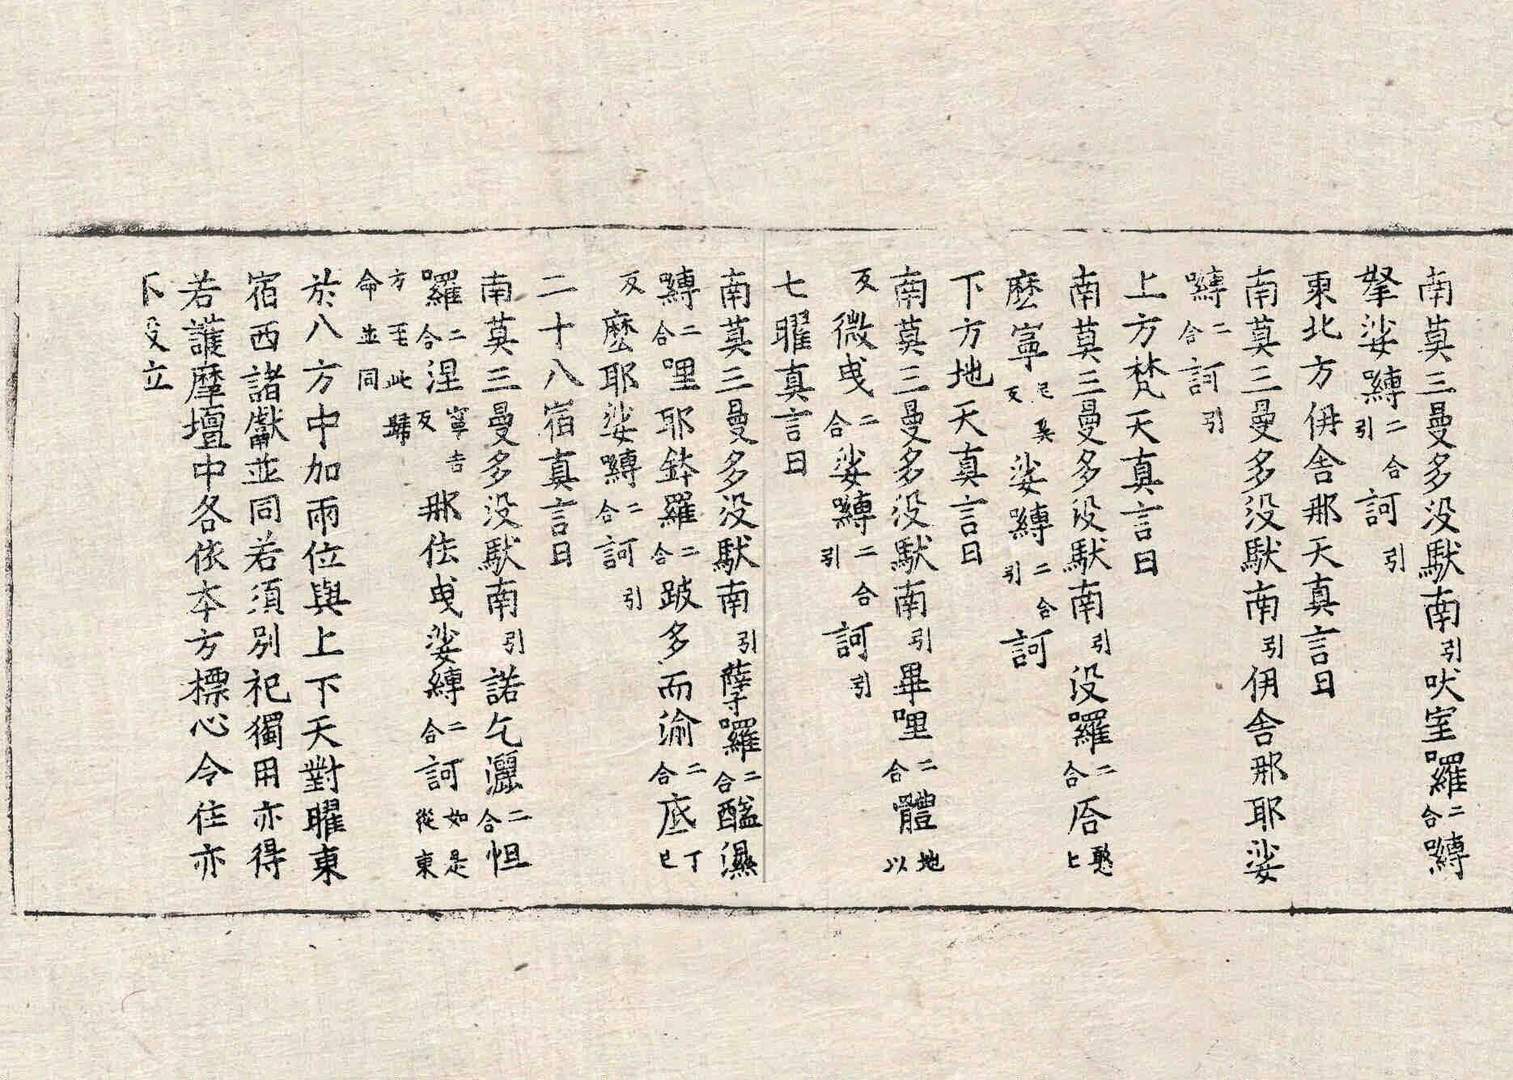 南莫三曼多没馱南引吠室囉二合嚩
拏娑嚩二合引訶引
東北方伊舍那天真言曰
南莫三曼多没馱南引伊舍那耶娑
嚩二合訶引
上方梵天真言曰
南莫三曼多没馱南引没囉二合
麼寧尼異反娑嚩二合引訶
下方地天真言曰
南莫三曼多没馱南引畢哩二合體地以
反微曳二合娑嚩二合引訶引
七曜真言曰
南莫三曼多没馱南引孽囉二合醯濕
嚩二合哩耶鉢囉二合跛多而渝二合底丁已
反麼耶娑嚩二合訶引
二十八宿真言曰
南莫三曼多没馱南引諾乞灑二合怛
囉二合涅寧吉反那佉曳娑嚩二合訶如是從東
方至此歸命並同
於八方中加兩位與上下天對曜東
宿西諸獻並同若須別祀獨用亦得
若護摩壇中各依本方標心令住亦
立